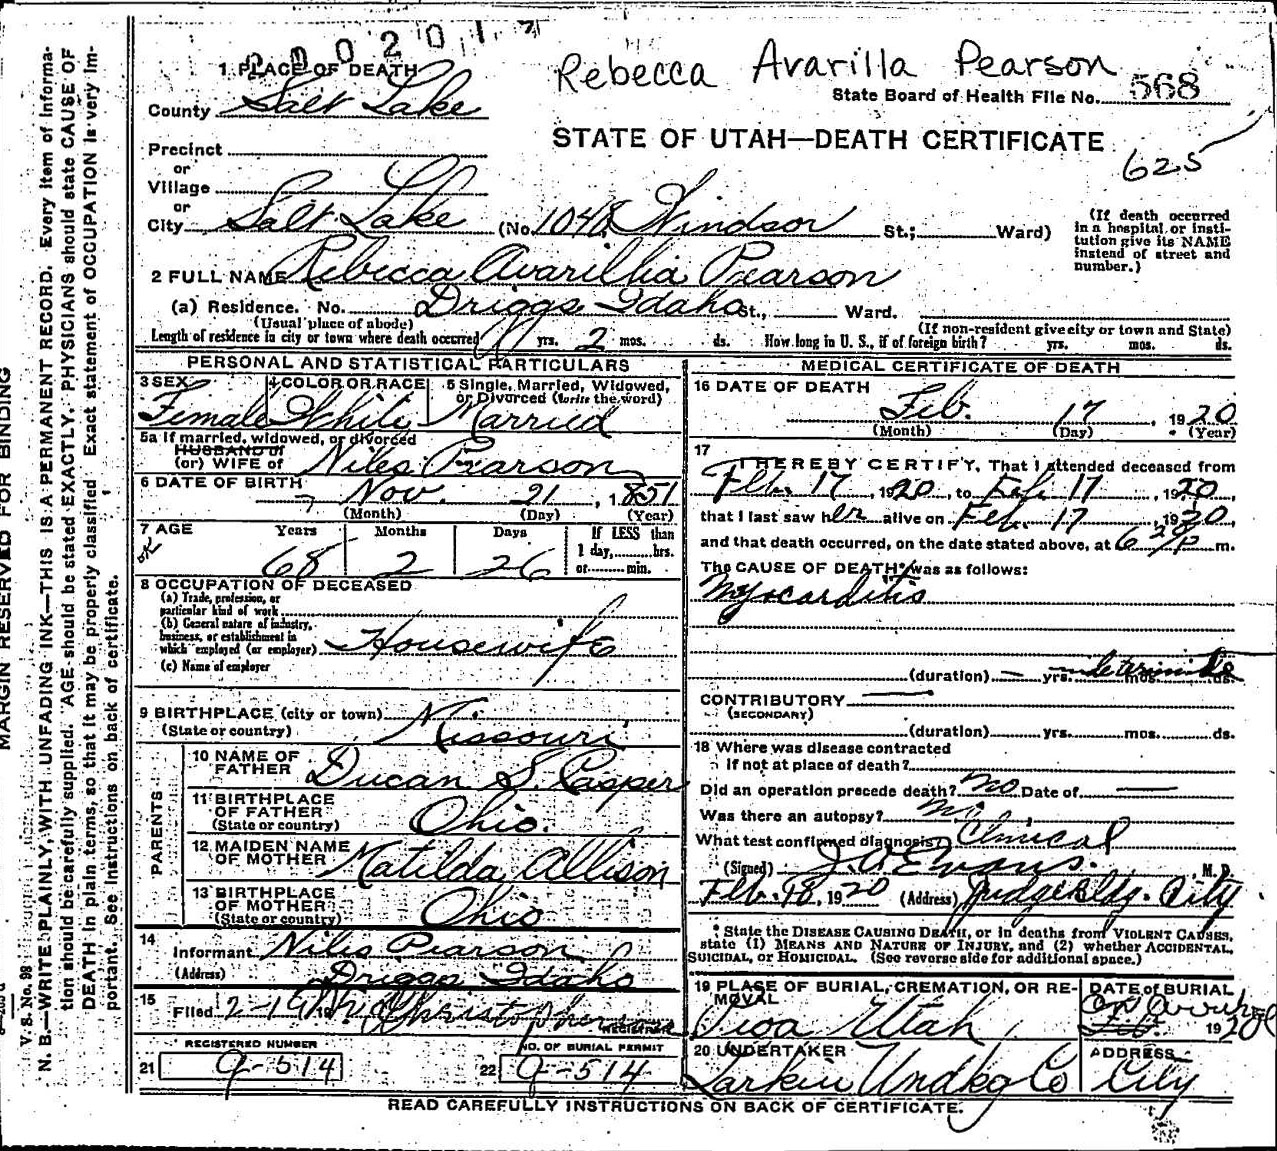 000201
Rebecca Avarilla Pearson
1 PLACE OF DEATH
County Salt Lake
State Board of Health File No. 568
STATE OF UTAH—DEATH CERTIFICATE
625
Precinct
or
Village
or
City Salt Lake (No. 1048 Windsor St.; Ward)
(If death occurred in a hospital or institution give its NAME instead of street and number.)
2 FULL NAME Rebecca Avarillia Pearson
(a) Residence. No. Driggs Idaho St., Ward.
(Usual place of abode) (If non-resident give city or town and State)
Length of residence in city or town where death occurred yrs. 2 mos. ds. How long in U. S., if of foreign birth? yrs. mos. ds.
PERSONAL AND STATISTICAL PARTICULARS
3 SEX Female
4 COLOR OR RACE White
5 Single, Married, Widowed, or Divorced (write the word) Married
5a If married, widowed, or divorced
HUSBAND of
(or) WIFE of Niles Pearson
6 DATE OF BIRTH Nov. 21, 1851
(Month) (Day) (Year)
7 AGE Years Months Days If LESS than
OK 68 2 26 1 day, hrs.
or min.
8 OCCUPATION OF DECEASED
(a) Trade, profession, or
particular kind of work
(b) General nature of industry,
business, or establishment in
which employed (or employer) Housewife
(c) Name of employer
9 BIRTHPLACE (city or town)
(State or country) Missouri
PARENTS
10 NAME OF FATHER Ducan S. Casper
11 BIRTHPLACE OF FATHER (State or country) Ohio.
12 MAIDEN NAME OF MOTHER Matilda Allison
13 BIRTHPLACE OF MOTHER (State or country) Ohio
14
Informant Niles Pearson
(Address) Driggs Idaho
15
Filed 2-19 19 Christopherson
REGISTRAR
REGISTERED NUMBER
21 9-514
NO. OF BURIAL PERMIT
22 9-514
MEDICAL CERTIFICATE OF DEATH
16 DATE OF DEATH
Feb. 17, 1920
(Month) (Day) (Year)
17
I HEREBY CERTIFY, That I attended deceased from
Feb. 17, 1920, to Feb. 17, 1920,
that I last saw her alive on Feb. 17 1920,
and that death occurred, on the date stated above, at 6 20/P m.
The CAUSE OF DEATH* was as follows:
Myocarditis
(duration) — yrs. mos. ds.
CONTRIBUTORY —
(SECONDARY)
(duration) yrs. mos. ds.
18 Where was disease contracted
If not at place of death?
Did an operation precede death? No Date of —
Was there an autopsy? No
What test confirmed diagnosis? Clinical
(Signed) J. O. Evans. M. D.
Feb. 18, 1920 (Address) Judge Bldg. City
* State the DISEASE CAUSING DEATH, or in deaths from VIOLENT CAUSES,
state (1) MEANS AND NATURE OF INJURY, and (2) whether ACCIDENTAL,
SUICIDAL, or HOMICIDAL. (See reverse side for additional space.)
19 PLACE OF BURIAL, CREMATION, OR REMOVAL
Utah
DATE of BURIAL
On Arrival
Feb. 1920
20 UNDERTAKER
Larkin Undkg Co
ADDRESS
City
READ CAREFULLY INSTRUCTIONS ON BACK OF CERTIFICATE.
MARGIN RESERVED FOR BINDING
V. S. No. 98
N. B.—WRITE PLAINLY, WITH UNFADING INK—THIS IS A PERMANENT RECORD. Every item of informa-
tion should be carefully supplied. AGE should be stated EXACTLY. PHYSICIANS should state CAUSE OF
DEATH in plain terms, so that it may be properly classified. Exact statement of OCCUPATION is very im-
portant. See instructions on back of certificate.